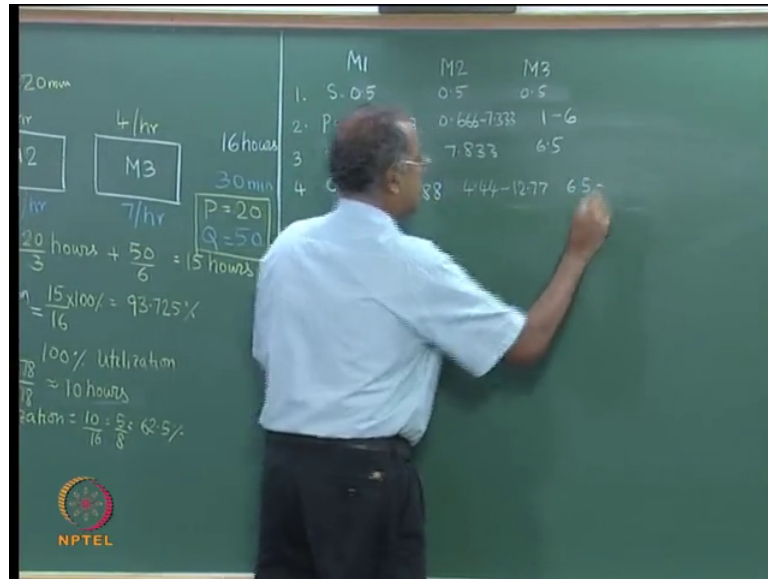 20min
4/hr
M3
7/hr
16 hours
30 min
P = 20
Q = 50
20/3 hours + 50/6 = 15 hours
= 15/16 x 100% = 93.725%
100% utilization
≈ 10 hours
zation = 10/16 = 5/8 = 62.5%
M1 M2 M3
1. S - 0.5 0.5 0.5
2. P 0.666-7.333 1-6
3 7.833 6.5
4 88 4.44-12.77 6.5-
NPTEL